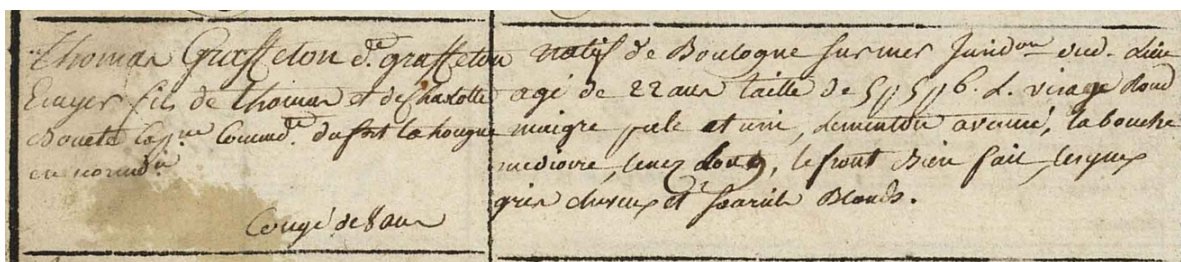 Thomas Grasseton d.t grasseton
Ecuyer fils de thomas et de Charlotte
Cap.ne Commd.t du fort la hougue
en normd.ie
Congé de 8 ans
natif de Boulogne sur mer Jurid.on dud. lieu
agé de 22 ans taille de 5 p 5 p 6. L. visage Rond
maigre pale et uni, lementon avancé, la bouche
mediocre, lenez Long, le front Bien fait, les yeux
gris cheveux et sourcils Blonds.